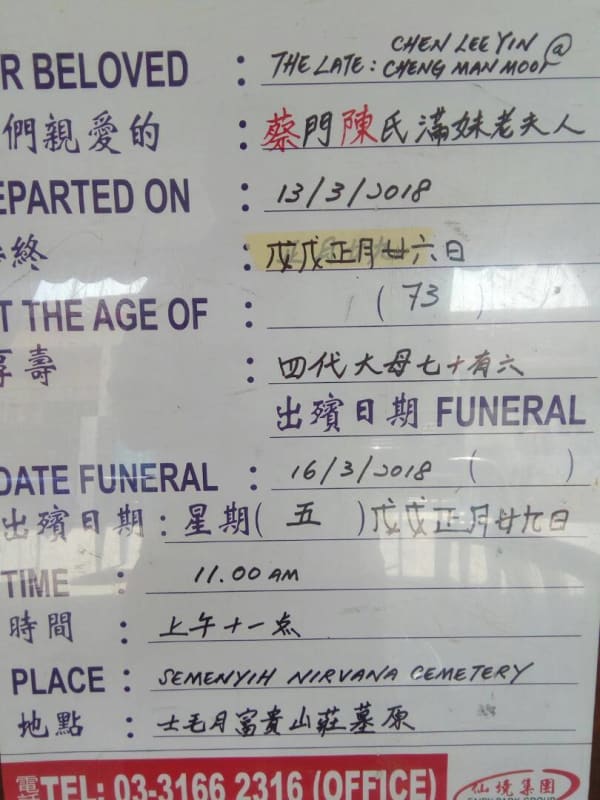 R BELOVED : THE LATE : CHEN LEE YIN @ CHENG MAN MOOY
們親愛的 : 蔡門陳氏滿妹老夫人
EPARTED ON : 13/3/2018
終 : 戊戌正月廿六日
T THE AGE OF : (73)
享壽 : 四代大母七十有六
出殯日期 FUNERAL
DATE FUNERAL : 16/3/2018 ( )
出殯日期 : 星期(五)戊戌正月廿九日
TIME : 11.00 AM
時間 : 上午十一点
PLACE : SEMENYIH NIRVANA CEMETERY
地點 : 士毛月富貴山莊墓原
電話 TEL: 03-3166 2316 (OFFICE)
仙境集團